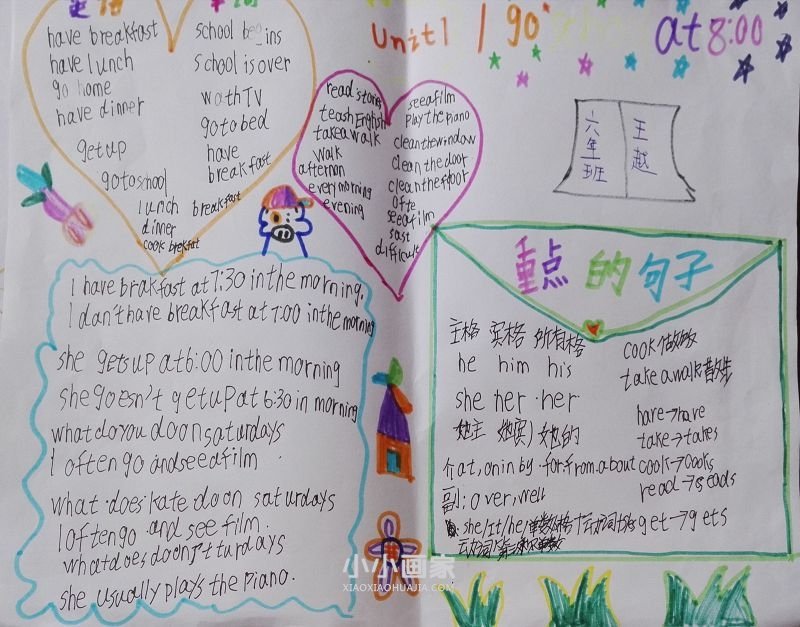 Unit1 I go at 8:00
have breakfast
have lunch
go home
have dinner
get up
go to school
lunch
dinner
cook brekfast
school is over
wathTV
go to bed
have
breakfast
breakfast
read stories
teash English
take a walk
walk
afternon
every morning
evening
see a film
Play the Piano
clean the window
clean the door
clean the floor
Ofte
see a film
difficult
六年班
王越
重点的句子
主格 宾格 所有格
he him his
she her her
她主 她宾 她的
介at,onin by.for.from.about
副:over,well
cook做饭
take a walk
have→have
take→takes
cook→cooks
read→
get→gets
I have brakfast at 7:30 in the morning.
I dan't have breakfast at 7:00 in the morning
she gets up at 6:00 in the morning
she goesn't get up at 6:30 in morning
what do you do on saturdays
I often go and see a film.
what does kate do on saturdays
I often go and see film.
what does do on
she usually plays the piano.
小小画家
XIAOXIAOHUAJIA.COM